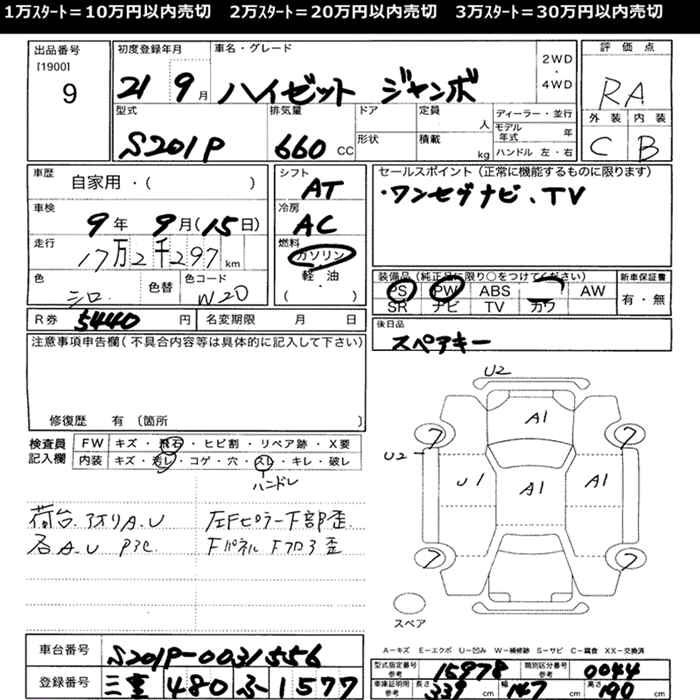 1万スタート＝10万円以内売切　2万スタート＝20万円以内売切　3万スタート＝30万円以内売切
出品番号
[1900]
9
初度登録年月
21 9月
車名・グレード
ハイゼット ジャンボ
2WD
・
4WD
評価点
RA
外装 内装
C B
型式
S201P
排気量
660 CC
ドア
形状
定員
人
積載
kg
ディーラー・並行
モデル年式 年
ハンドル 左・右
車歴
自家用・(　)
車検
9年 9月(15日)
走行
17万2千297 km
色
シロ
色替
色コード
W20
シフト
AT
冷房
AC
燃料
ガソリン
軽・油
(　)
セールスポイント（正常に機能するものに限ります）
・ワンセグナビ、TV
装備品（純正品に限り○をつけてください）
PS PW ABS AW
SR ナビ TV カワ
新車保証書
有・無
R券 5440 円
名変期限 月 日
後日品
スペアキー
注意事項申告欄（不具合内容等は具体的に記入して下さい）
修復歴 有〔箇所　〕
検査員記入欄
FW キズ・飛石・ヒビ割・リペア跡・X要
内装 キズ・汚レ・コゲ・穴・スレ・キレ・破レ
ハンドル
荷台 アオリA.U
左Fピラー下部歪
A.U
Fパネル Fフロア歪
U2
A1
7
7
U2
U1
A1
A1
7
7
スペア
A－キズ E－エクボ U－凹み W－補修跡 S－サビ C－腐食 XX－交換済
車台番号
S201P-0031556
登録番号
三重 480 ふ 1577
型式指定番号 参考 15978
類別区分番号 参考 0044
車庫証明用 参考 長さ 339 cm 幅 147 cm 高さ 190 cm